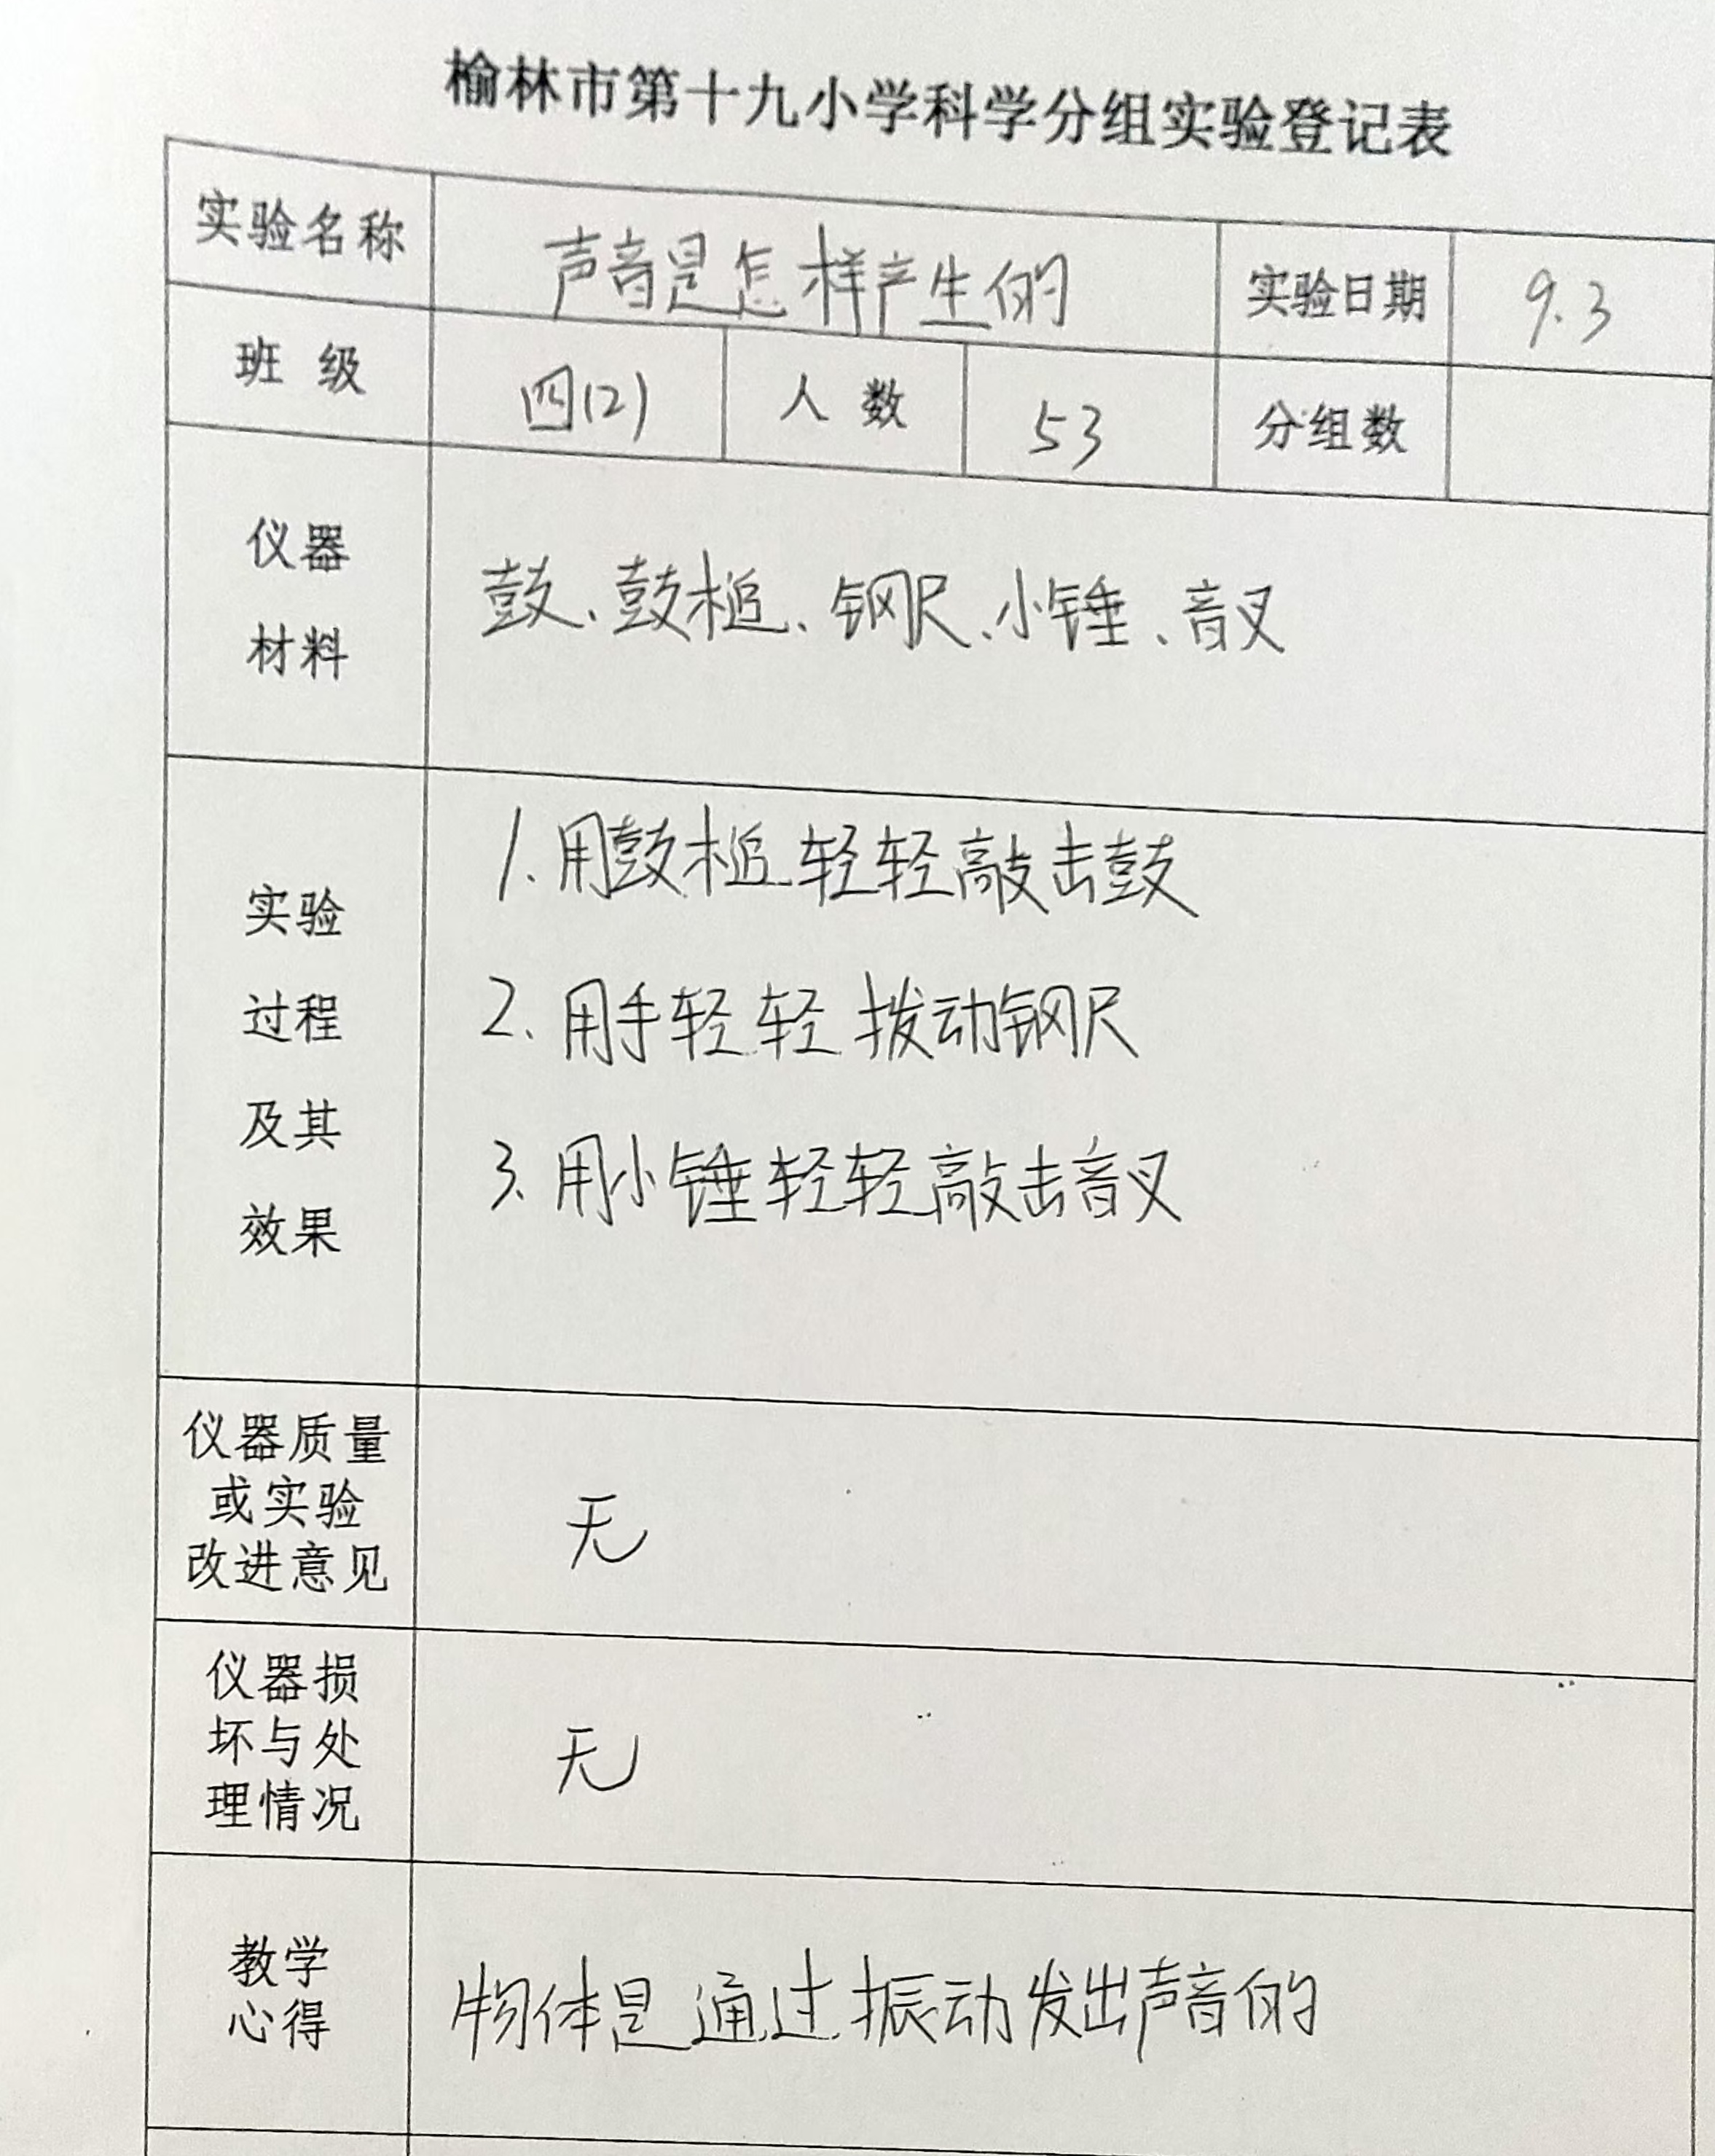 榆林市第十九小学科学分组实验登记表
实验名称 声音是怎样产生的 实验日期 9.3
班级 四(2) 人数 53 分组数
仪器
材料
鼓、鼓槌、钢尺、小锤、音叉
实验
过程
及其
效果
1.用鼓槌轻轻敲击鼓
2.用手轻轻拨动钢尺
3.用小锤轻轻敲击音叉
仪器质量
或实验
改进意见
无
仪器损
坏与处
理情况
无
教学
心得
物体是通过振动发出声音的